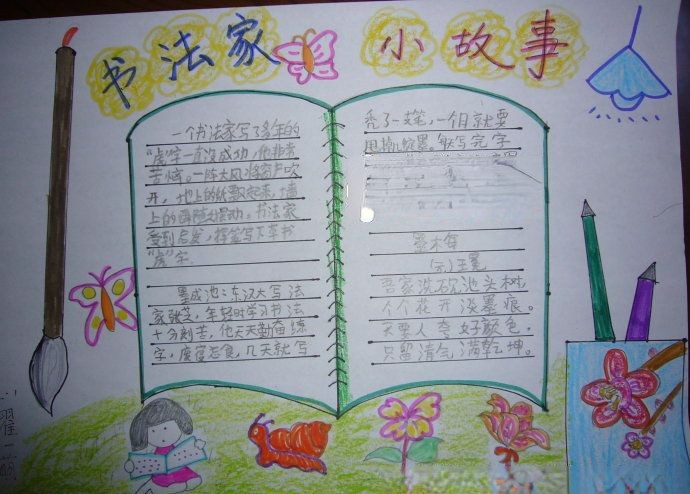 书法家 小故事
一个书法家写了多年的
“虎”字一直没成功,他非常
苦恼。一阵大风将窗户吹
开,地上的纸飘起来,墙
上的
书法家
受到启发,挥笔写下草书
“虎”字。
墨成池:东汉大写法
家张芝,年轻时学习书法
十分刻苦,他天天勤奋练
字,废寝忘食,几天就写
秃了一支笔,一个月就要
用掉几锭墨。每次写完字
墨梅
王冕
吾家洗砚池头树,
个个花开淡墨痕。
不要人夸好颜色,
只留清气满乾坤。